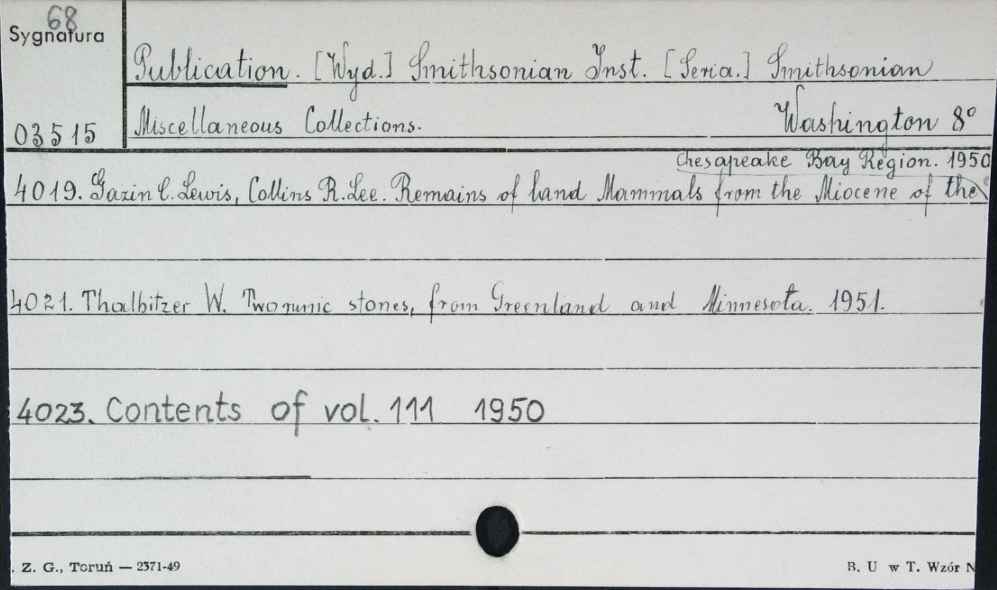 68
Sygnatura
03515
Publication. [Wyd.] Smithsonian Inst. [Seria.] Smithsonian
Miscellaneous Collections. Washington 8°
Chesapeake Bay Region. 1950
4019. Gazin C. Lewis, Collins R. Lee. Remains of land Mammals from the Miocene of the
4021. Thalbitzer W. Two runic stones, from Greenland and Minnesota. 1951.
4023. Contents of vol. 111 1950
. Z. G., Toruń — 2371-49
B. U w T. Wzór N